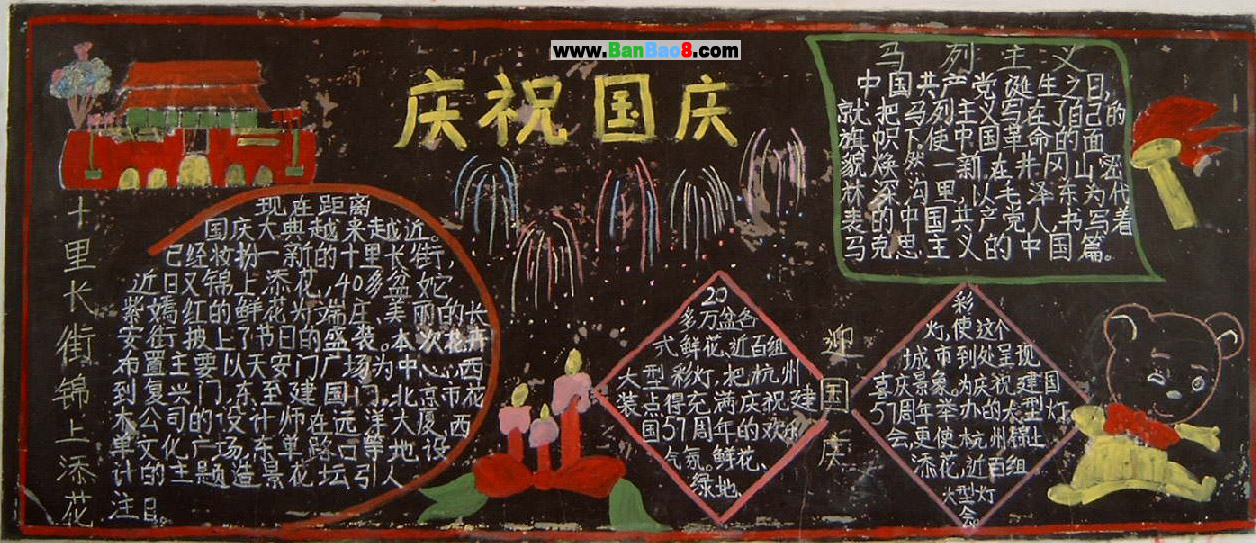 www.BanBao8.com
庆祝国庆
十里长街锦上添花
现在距离
国庆大典越来越近。
已经妆扮一新的十里长街,
近日又锦上添花,40多盆姹
紫嫣红的鲜花灯端庄、美丽的长
安街披上了节日的盛装。本次花卉
布置主要以天安门广场为中心,西
到复兴门,东至建国门,北京市花
木公司的设计师在远洋大厦、西
单文化广场,东单路口等地设
计的主题造景花坛引人
注目。
马列主义
中国共产党诞生之日,
就把马列主义写在了自己的
旗帜下,使中国革命的面
貌焕然一新,在井冈山密
林深沟里,以毛泽东为代
表的中国共产党人,书写着
马克思主义的中国篇。
20
多万盆各
式鲜花、近百组
大型彩灯,把杭州
装点得充满庆祝建
国57周年的欢乐
气氛。鲜花、
绿地、
迎国庆
彩
灯,使这个
城市到处呈现
喜庆景象。为庆祝建国
57周年举办的大型灯
会,更使杭州锦上
添花,近百组
大型灯
会。